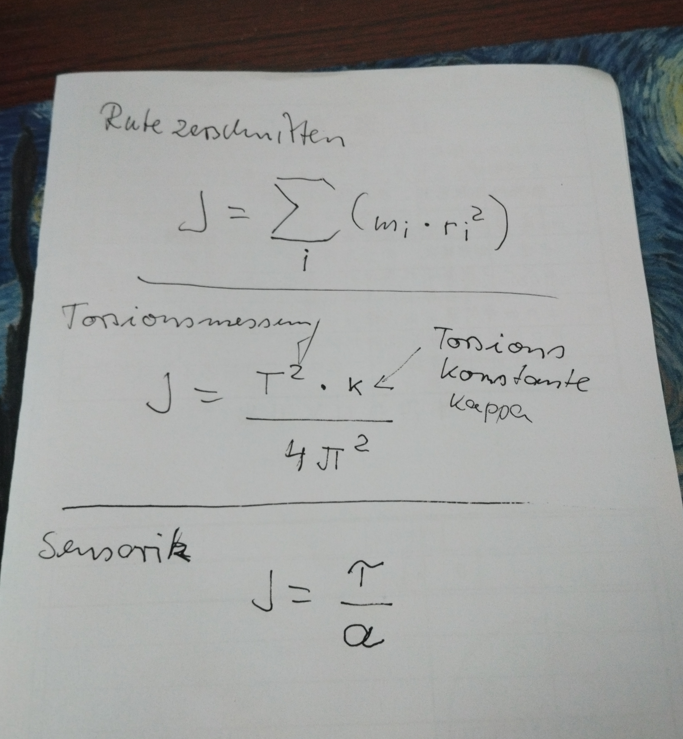 Rute zerschnitten
J = ∑ (mᵢ · rᵢ²)
i
Torsionsmessung
J = T² · κ
4π²
Torsions
konstante
kappa
Sensorik
J = τ
α